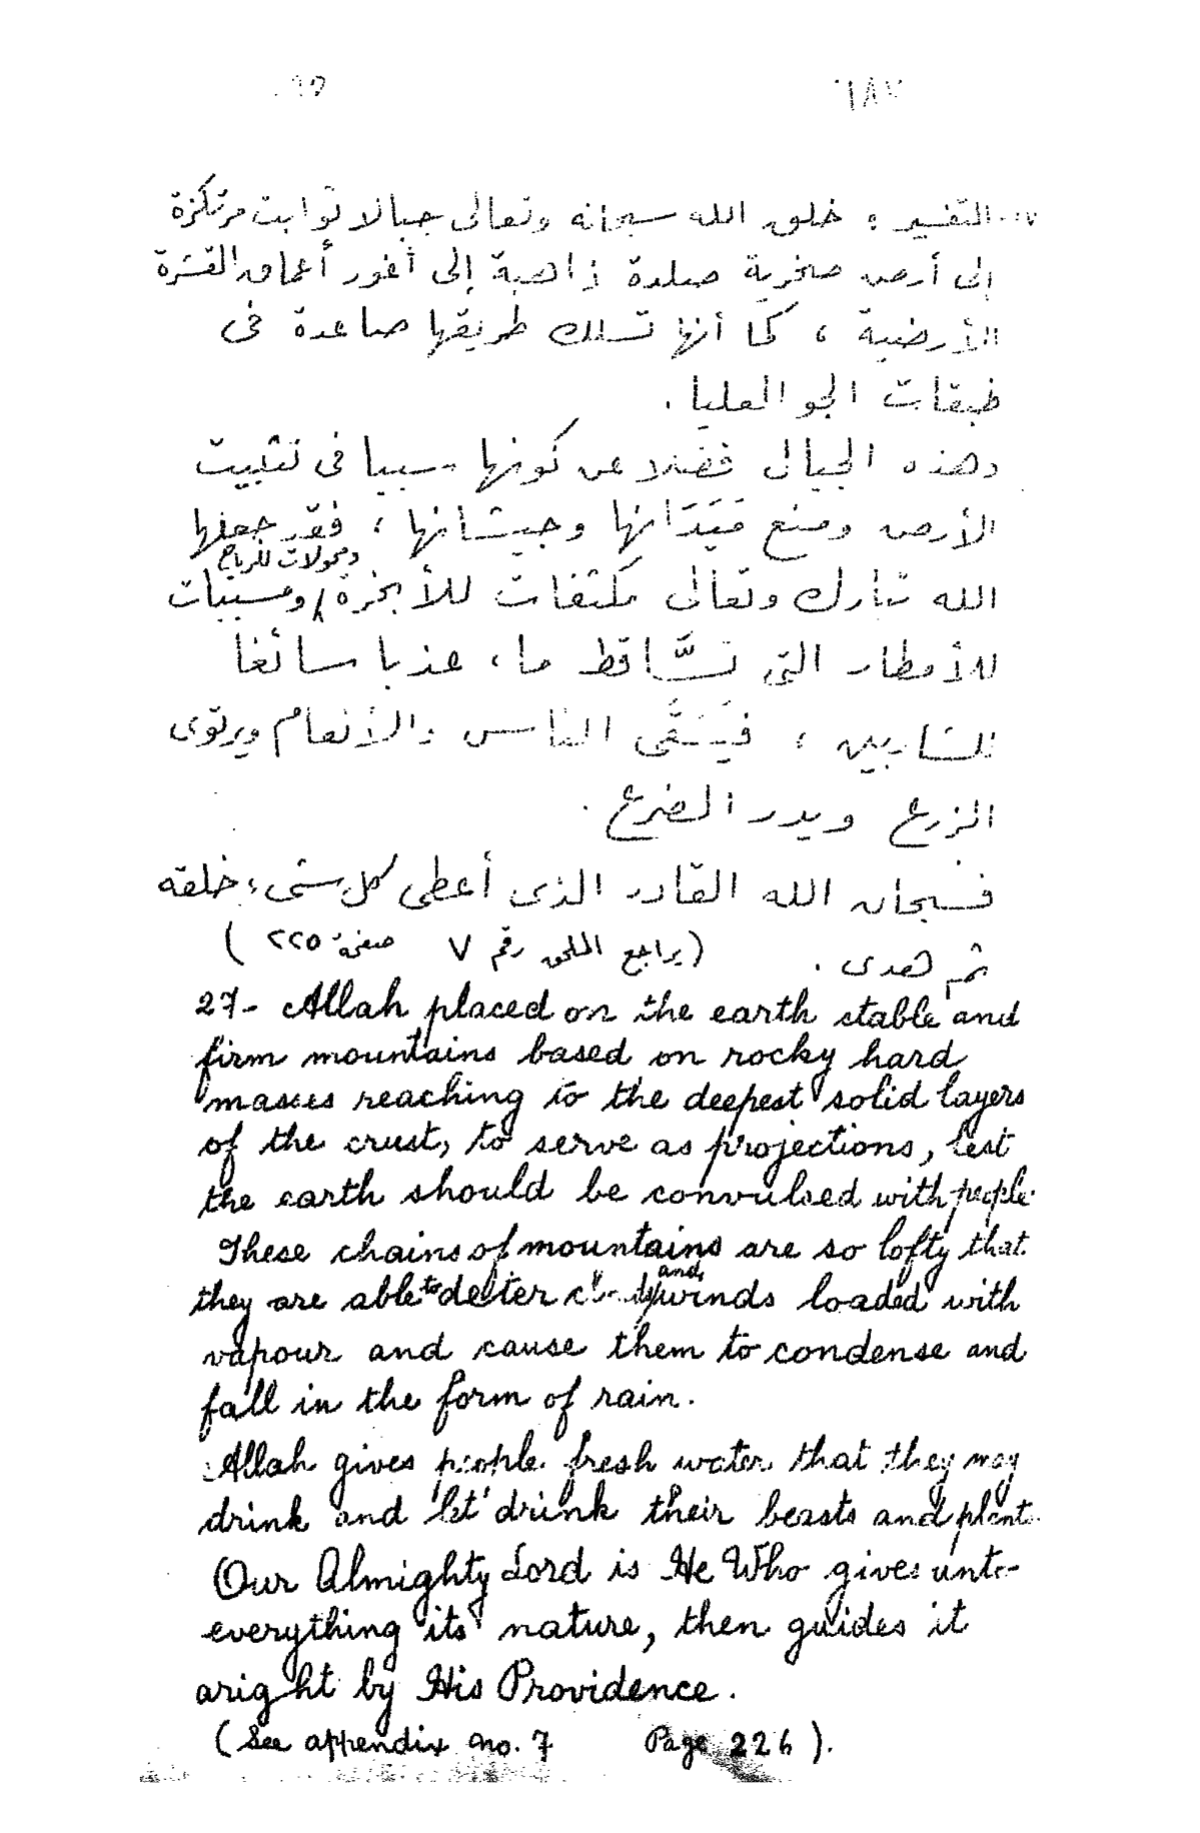 التفسير : خلق الله سبحانه وتعالى جبالا ثوابت مرتكزة
إلى أرض صخرية صلدة ذاهبة إلى أغور أعماق القشرة
الأرضية ، كما أنها تسلك طريقها صاعدة فى
طبقات الجو العليا .
وهذه الجبال فضلا عن كونها سببا فى تثبيت
الأرض ومنع مَيَدَانها وجيشانها ، فقد جعلها
ومحولات للرياح
الله تبارك وتعالى مكثفات للأبخرة ومسببات
للأمطار التى تسَّاقط ماء عذبا سائغا
للشاربين ، فيَسْقَى الناس والأنعام ويرتوى
الزرع ويدر الضرع .
فسبحان الله القادر الذى أعطى كل شىء خلقه
ثم هدى . (يراجع الملحق رقم ٧ صفحة ٢٢٥ )
27- Allah placed on the earth stable and
firm mountains based on rocky hard
masses reaching to the deepest solid layers
of the crust, to serve as projections, lest
the earth should be convulsed with people.
These chains of mountains are so lofty that
and
they are able to deter winds loaded with
vapour and cause them to condense and
fall in the form of rain.
Allah gives people fresh water that they may
drink and let drink their beasts and plants.
Our Almighty Lord is He Who gives unto
everything its nature, then guides it
aright by His Providence.
(See appendix no. 7 Page 226).